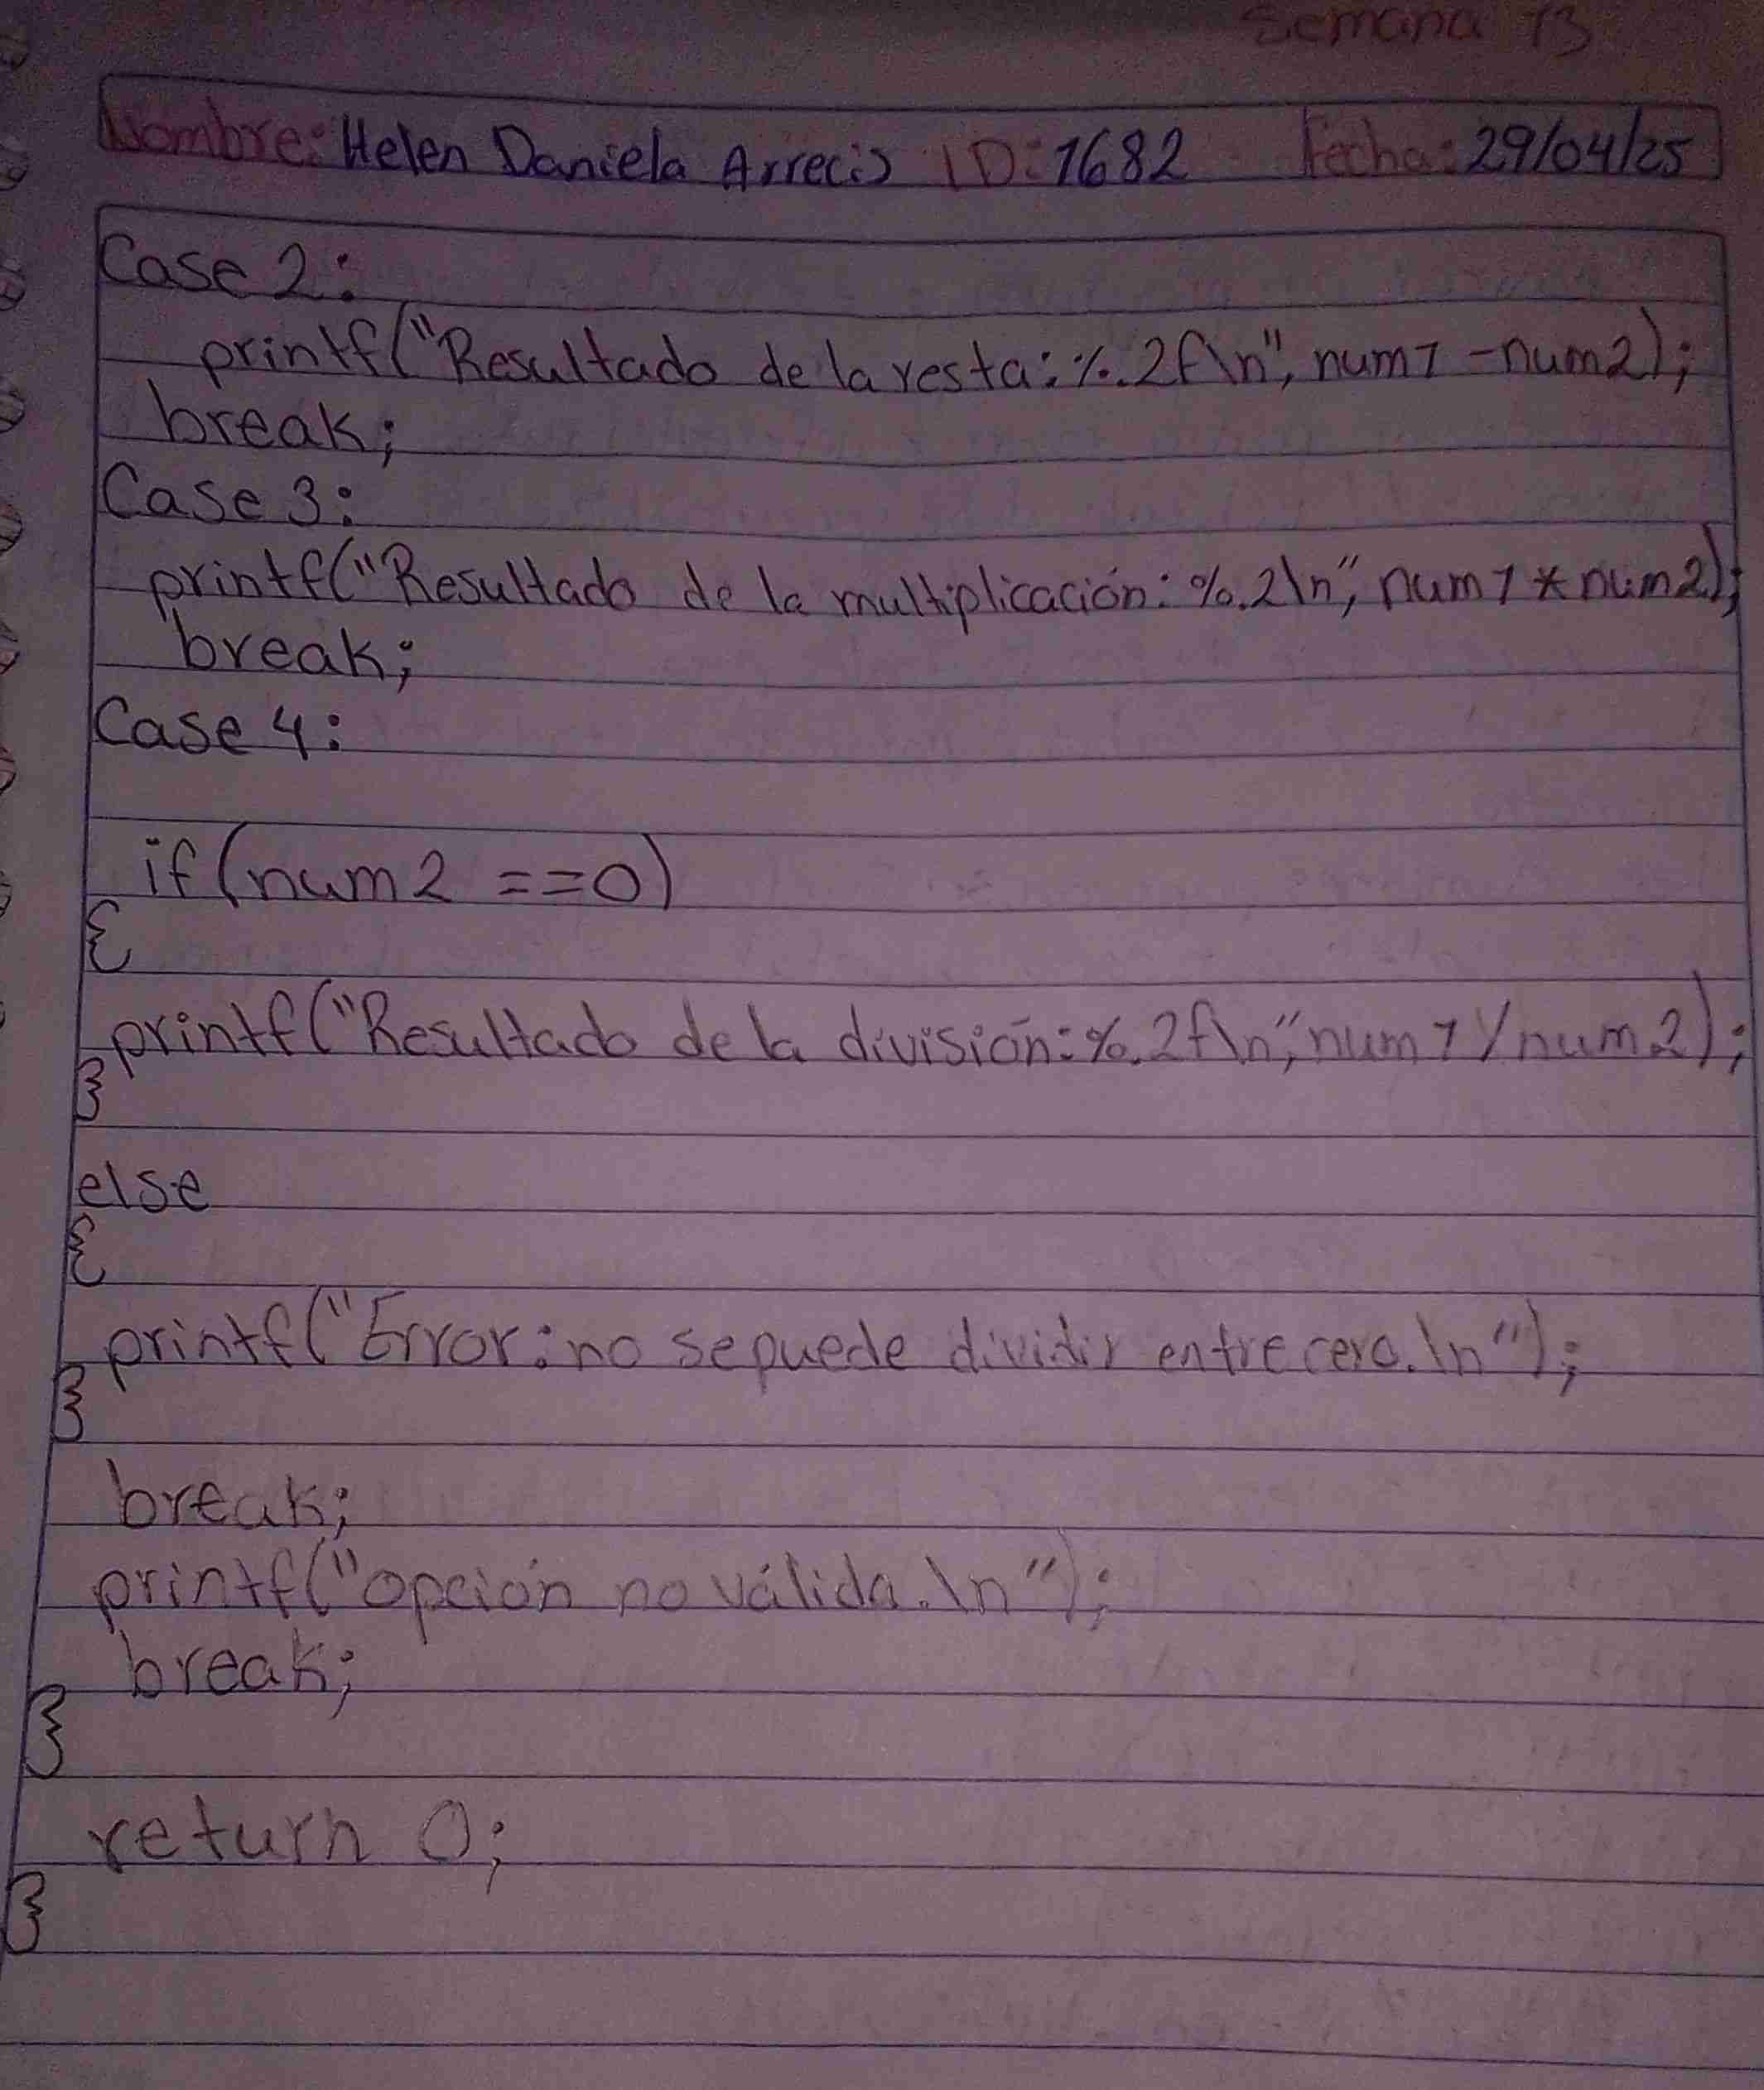 Semana 13
Nombre: Helen Daniela Arrecis ID: 1682 Fecha: 29/04/25
Case 2:
printf("Resultado de la resta: %.2f\n", num1 - num2);
break;
Case 3:
printf("Resultado de la multiplicación: %.2\n", num1 * num2);
break;
Case 4:
if(num2 ==0)
{
printf("Resultado de la división: %.2f\n", num1 / num2);
}
else
{
printf("Error: no se puede dividir entre cero.\n");
}
break;
printf("opción no válida.\n");
break;
}
return 0;
}